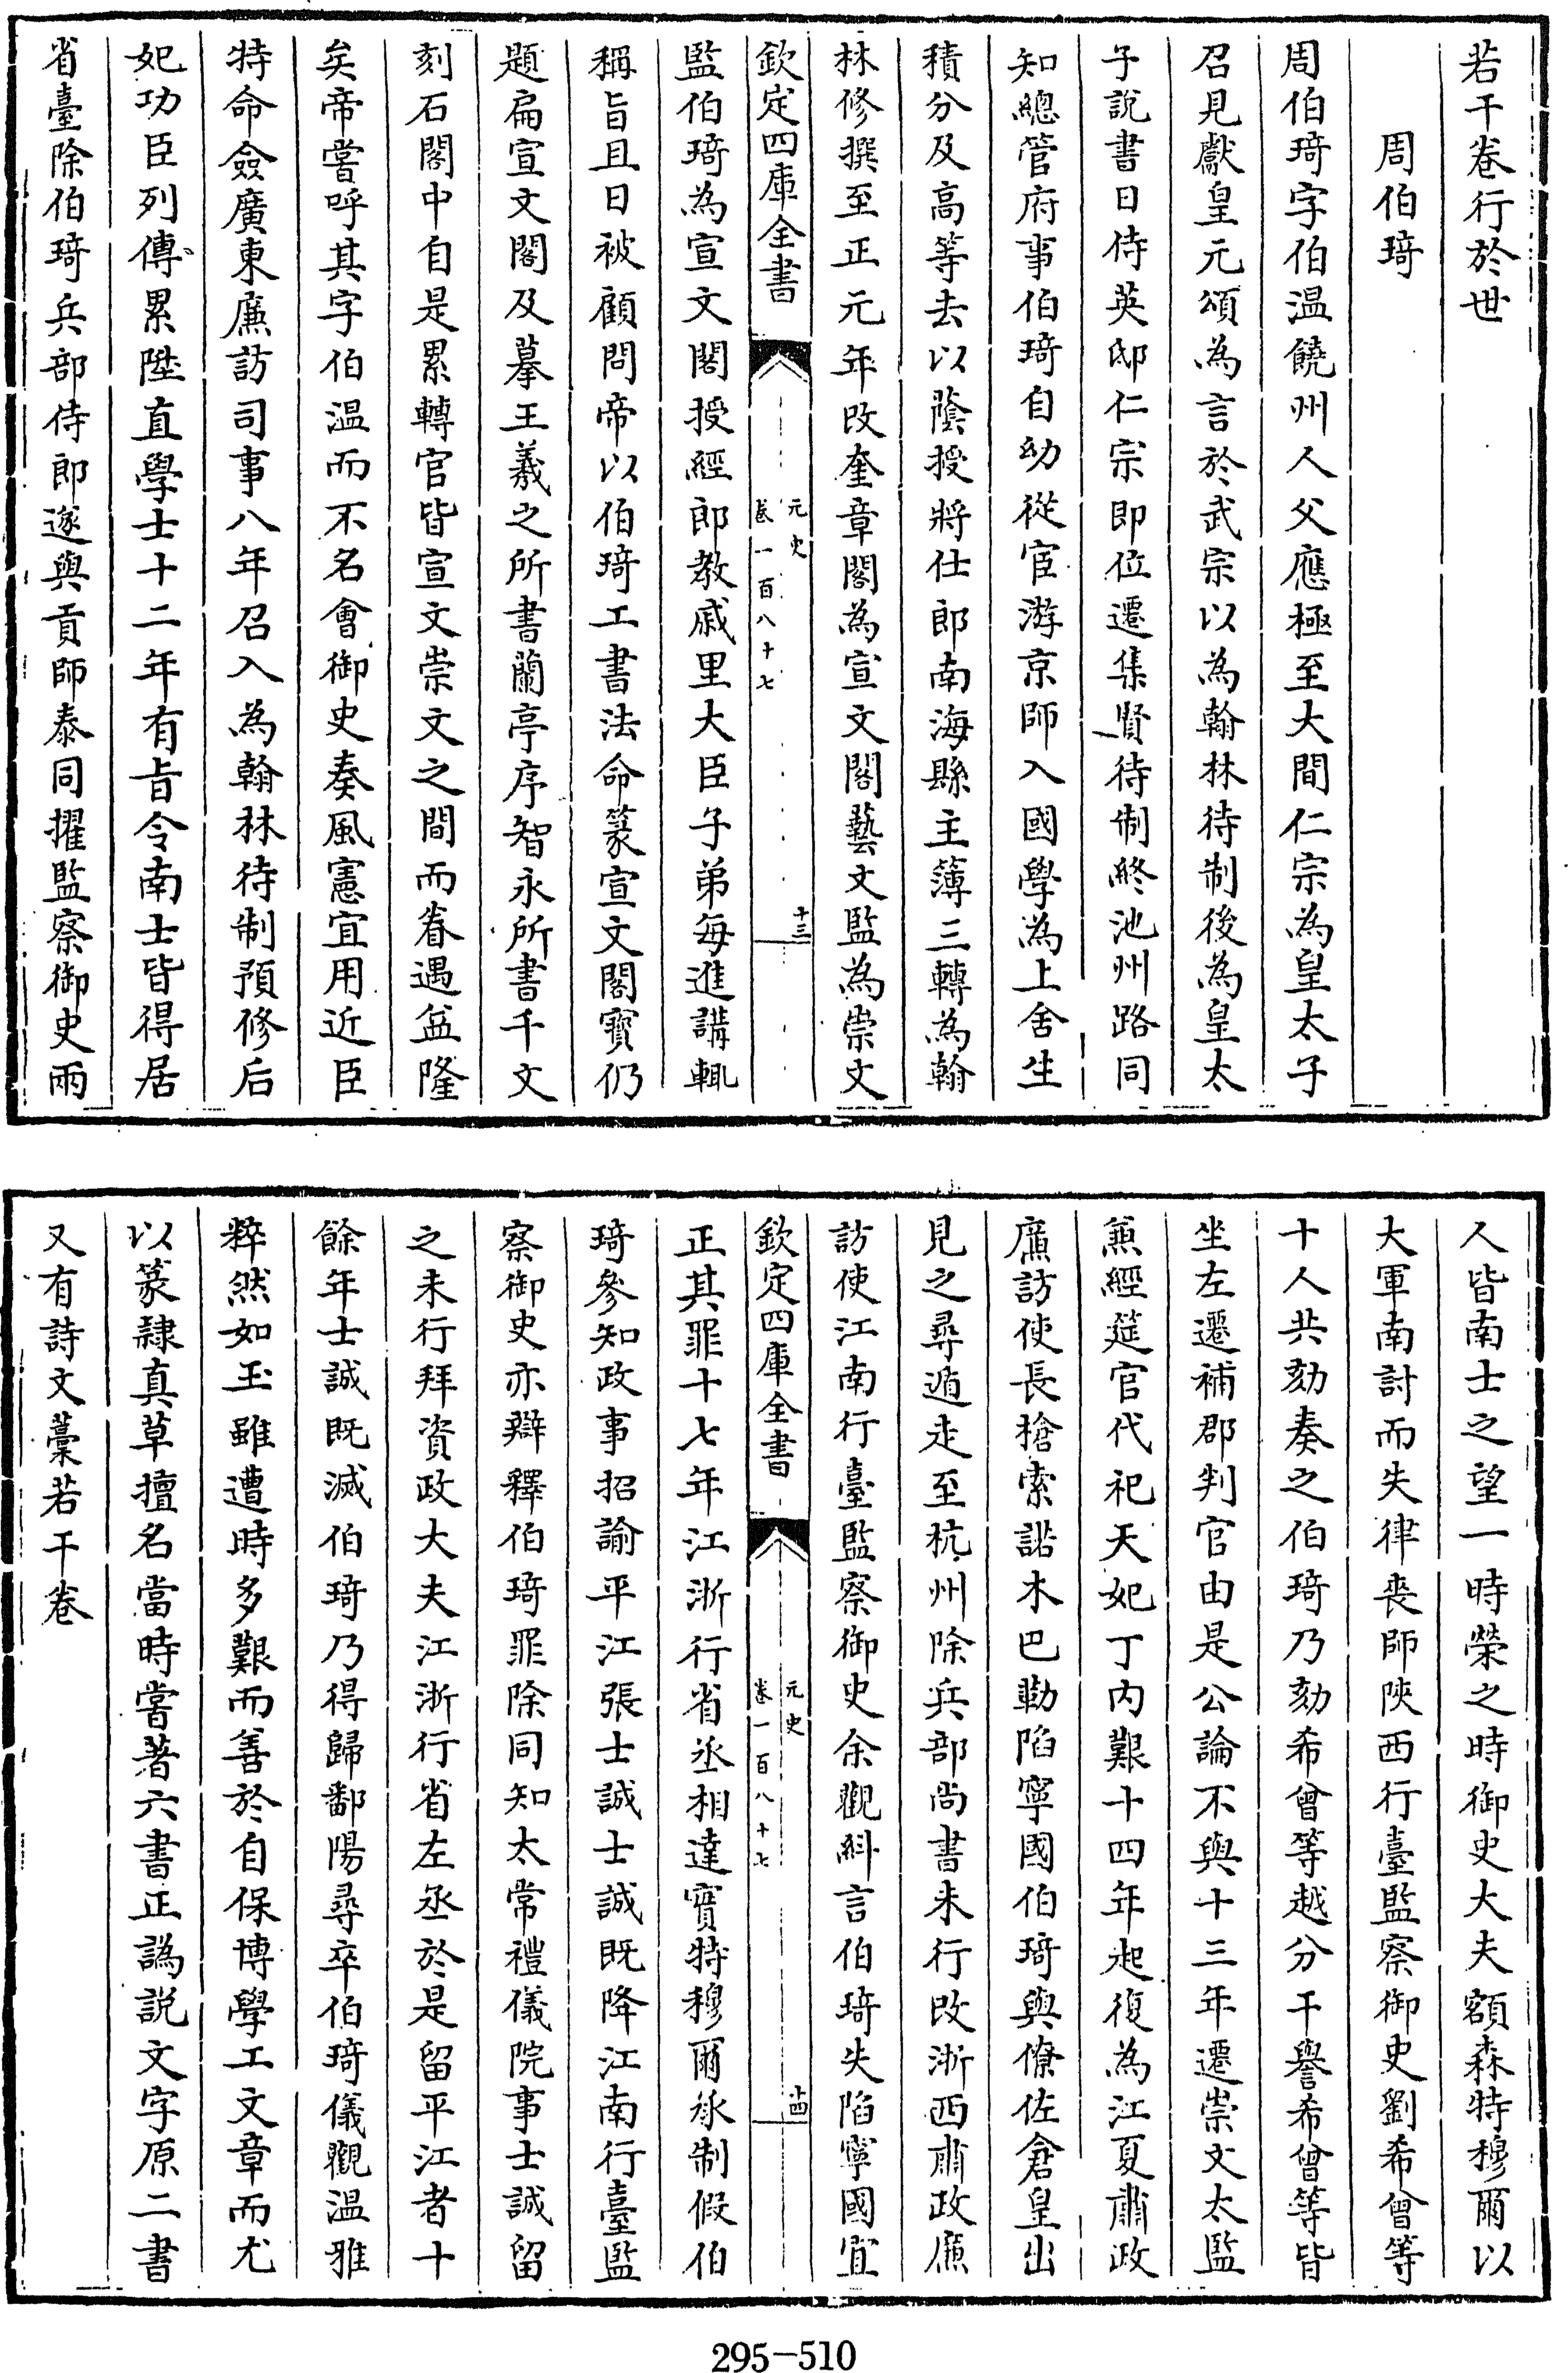 若干卷行於世
周伯琦
周伯琦字伯温饒州人父應極至大間仁宗為皇太子
召見獻皇元頌為言於武宗以為翰林待制後為皇太
子說書日侍英邸仁宗即位遷集賢待制終池州路同
知總管府事伯琦自幼從宦游京師入國學為上舍生
積分及高等去以蔭授將仕郎南海縣主簿三轉為翰
林修撰至正元年改奎章閣為宣文閣藝文監為崇文
欽定四庫全書
元史
卷一百八十七
十三
監伯琦為宣文閣授經郎教戚里大臣子弟每進講輒
稱旨且日被顧問帝以伯琦工書法命篆宣文閣寳仍
題扁宣文閣及摹王羲之所書蘭亭序智永所書千文
刻石閣中自是累轉官皆宣文崇文之間而眷遇益隆
矣帝嘗呼其字伯温而不名會御史奏風憲宜用近臣
特命僉廣東廉訪司事八年召入為翰林待制預修后
妃功臣列傳累陞直學士十二年有旨令南士皆得居
省臺除伯琦兵部侍郎遂與貢師泰同擢監察御史兩
人皆南士之望一時榮之時御史大夫額森特穆爾以
大軍南討而失律喪師陜西行臺監察御史劉希曾等
十人共劾奏之伯琦乃劾希曾等越分干譽希曾等皆
坐左遷補郡判官由是公論不與十三年遷崇文太監
兼經筵官代祀天妃丁内艱十四年起復為江夏肅政
廉訪使長槍索諾木巴勒陷寧國伯琦與僚佐倉皇出
見之尋遁走至杭州除兵部尚書未行改浙西肅政廉
訪使江南行臺監察御史余觀糾言伯琦失陷寧國宜
欽定四庫全書
元史
卷一百八十七
十四
正其罪十七年江浙行省丞相達實特穆爾承制假伯
琦參知政事招諭平江張士誠士誠既降江南行臺監
察御史亦辯釋伯琦罪除同知太常禮儀院事士誠留
之未行拜資政大夫江浙行省左丞於是留平江者十
餘年士誠既滅伯琦乃得歸鄱陽尋卒伯琦儀觀温雅
粹然如玉雖遭時多艱而善於自保博學工文章而尤
以篆隸真草擅名當時嘗著六書正譌說文字原二書
又有詩文藁若干卷
295-510